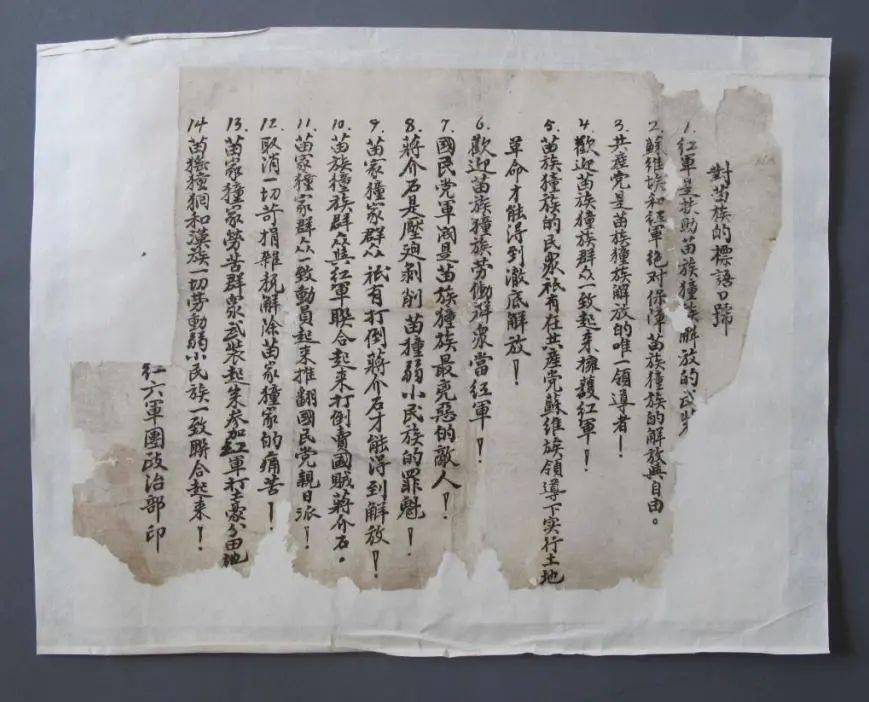 對苗族的標語口號
1. 紅軍是扶助苗族獞族解放的武裝
2. 蘇維埃和紅軍绝对保障苗族獞族的解放與自由。
3. 共産党是苗族獞族解放的唯一領導者!
4. 歡迎苗族獞族群众一致起来擁護紅軍!
5. 苗族獞族的民衆祇有在共產党蘇維族領導下实行土地
革命才能得到澈底解放!
6. 歡迎苗族獞族劳働群眾當紅軍!
7. 國民党軍阀是苗族獞族最兇惡的敵人!
8. 蔣介石是壓廹剥削苗獞弱小民族的罪魁!
9. 苗家獞家群众祇有打倒蔣介石才能得到解放!
10. 苗族獞族群众與紅軍聯合起来打倒賣國賊蔣介石。
11. 苗家獞家群众一致動員起來推翻國民党親日派!
12. 取消一切苛捐雜税解除苗家獞家的痛苦!
13. 苗家獞家勞苦群眾武裝起来参加紅軍打土豪分田地
14. 苗猺獞狪和漢族一切劳動弱小民族一致聯合起来!
紅六軍團政治部印